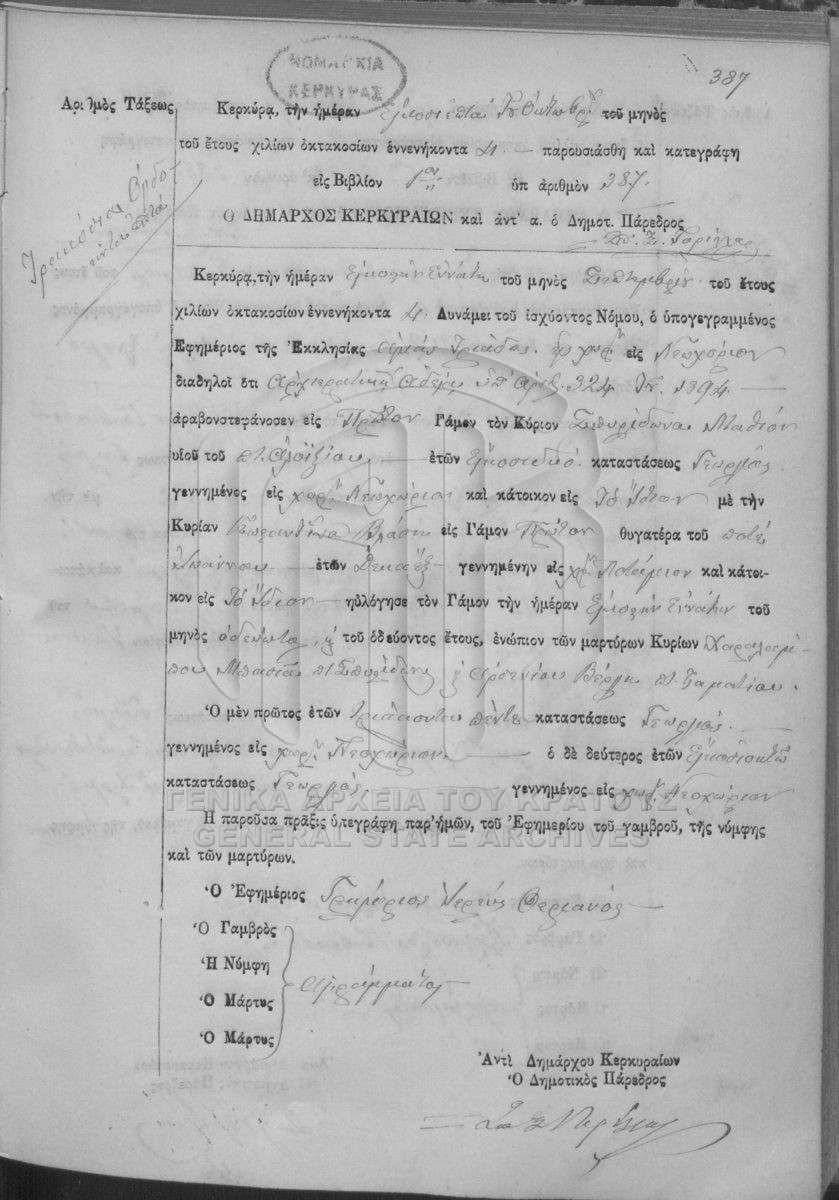 ΝΟΜΑΡΧΙΑ
ΚΕΡΚΥΡΑΣ
387
Αριθμὸς Τάξεως
Κερκύρᾳ, τὴν ἡμέραν Εἰκοστὶ ἑπτὰ Ὀκτωβρ. τοῦ μηνὸς
τοῦ ἔτους χιλίων ὀκτακοσίων ἐννενήκοντα 4. παρουσιάσθη καὶ κατεγράφη
εἰς Βιβλίον 1ον ὑπ ἀριθμὸν 387.
Τριακόσια Ὀγδοήντα ἑπτά
Ο ΔΗΜΑΡΧΟΣ ΚΕΡΚΥΡΑΙΩΝ καὶ ἀντ' α. ὁ Δημοτ. Πάρεδρος
Κερκύρᾳ, τὴν ἡμέραν Εἰκοστὴν Ἐννάτην τοῦ μηνὸς Σεπτεμβρίου τοῦ ἔτους
χιλίων ὀκτακοσίων ἐννενήκοντα 4. Δυνάμει τοῦ ἰσχύοντος Νόμου, ὁ ὑπογεγραμμένος
Ἐφημέριος τῆς Ἐκκλησίας Ἁγίας Τριάδος εἰς Νεωχόριον
διαδηλοῖ ὅτι Ἀρχιερατικῇ Ἀδείᾳ ὑπ' Ἀριθ. 324 1894.
ἀραβονστεφάνοσεν εἰς Πρῶτον Γάμον τὸν Κύριον Σπυρίδωνα
υἱοῦ τοῦ πτ. Ἀλοϊζίου ἐτῶν Εἴκοσιδυό. καταστάσεως Γεωργός.
γεννημένος εἰς χωρ. Νεωχώριον καὶ κάτοικον εἰς Τὸ Ἴδιον μὲ τὴν
Κυρίαν Κωσταντίνα Βλάση εἰς Γάμον Πρῶτον θυγατέρα τοῦ ποτὲ
Ἰωάννου ἐτῶν Δεκαέξ γεννημένην εἰς χωρ. Ποτάμιον καὶ κάτοι-
κον εἰς Τὸ Ἴδιον ηὐλόγησε τὸν Γάμον τὴν ἡμέραν Εἰκοστὴν Ἐννάτην τοῦ
μηνὸς τοῦ ὁδεύοντος ἔτους, ἐνώπιον τῶν μαρτύρων Κυρίων Χαραλάμ-
που πτ. Σπυρίδων Ἀρσενίου Βέργη πτ. Σταματίου.
Ὁ μὲν πρῶτος ἐτῶν τριάκοντα πέντε καταστάσεως Γεωργός.
γεννημένος εἰς χωρ. Νεοχώριον. ὁ δὲ δεύτερος ἐτῶν Εἰκοσιοκτώ
καταστάσεως Γεωργός. γεννημένος εἰς χωρ. Νεοχώριον
ΓΕΝΙΚΑ ΑΡΧΕΙΑ ΤΟΥ ΚΡΑΤΟΥΣ
GENERAL STATE ARCHIVES
Ἡ παροῦσα πρᾶξις ὑπεγράφη παρ' ἡμῶν, τοῦ Ἐφημερίου τοῦ γαμβροῦ, τῆς νύμφης
καὶ τῶν μαρτύρων.
Ὁ Ἐφημέριος Γρηγόριος Ἱερεὺς Θεριανὸς
Ὁ Γαμβρὸς
Ἡ Νύμφη
Ἀγράμματοι
Ὁ Μάρτυς
Ὁ Μάρτυς
Ἀντὶ Δημάρχου Κερκυραίων
Ὁ Δημοτικὸς Πάρεδρος